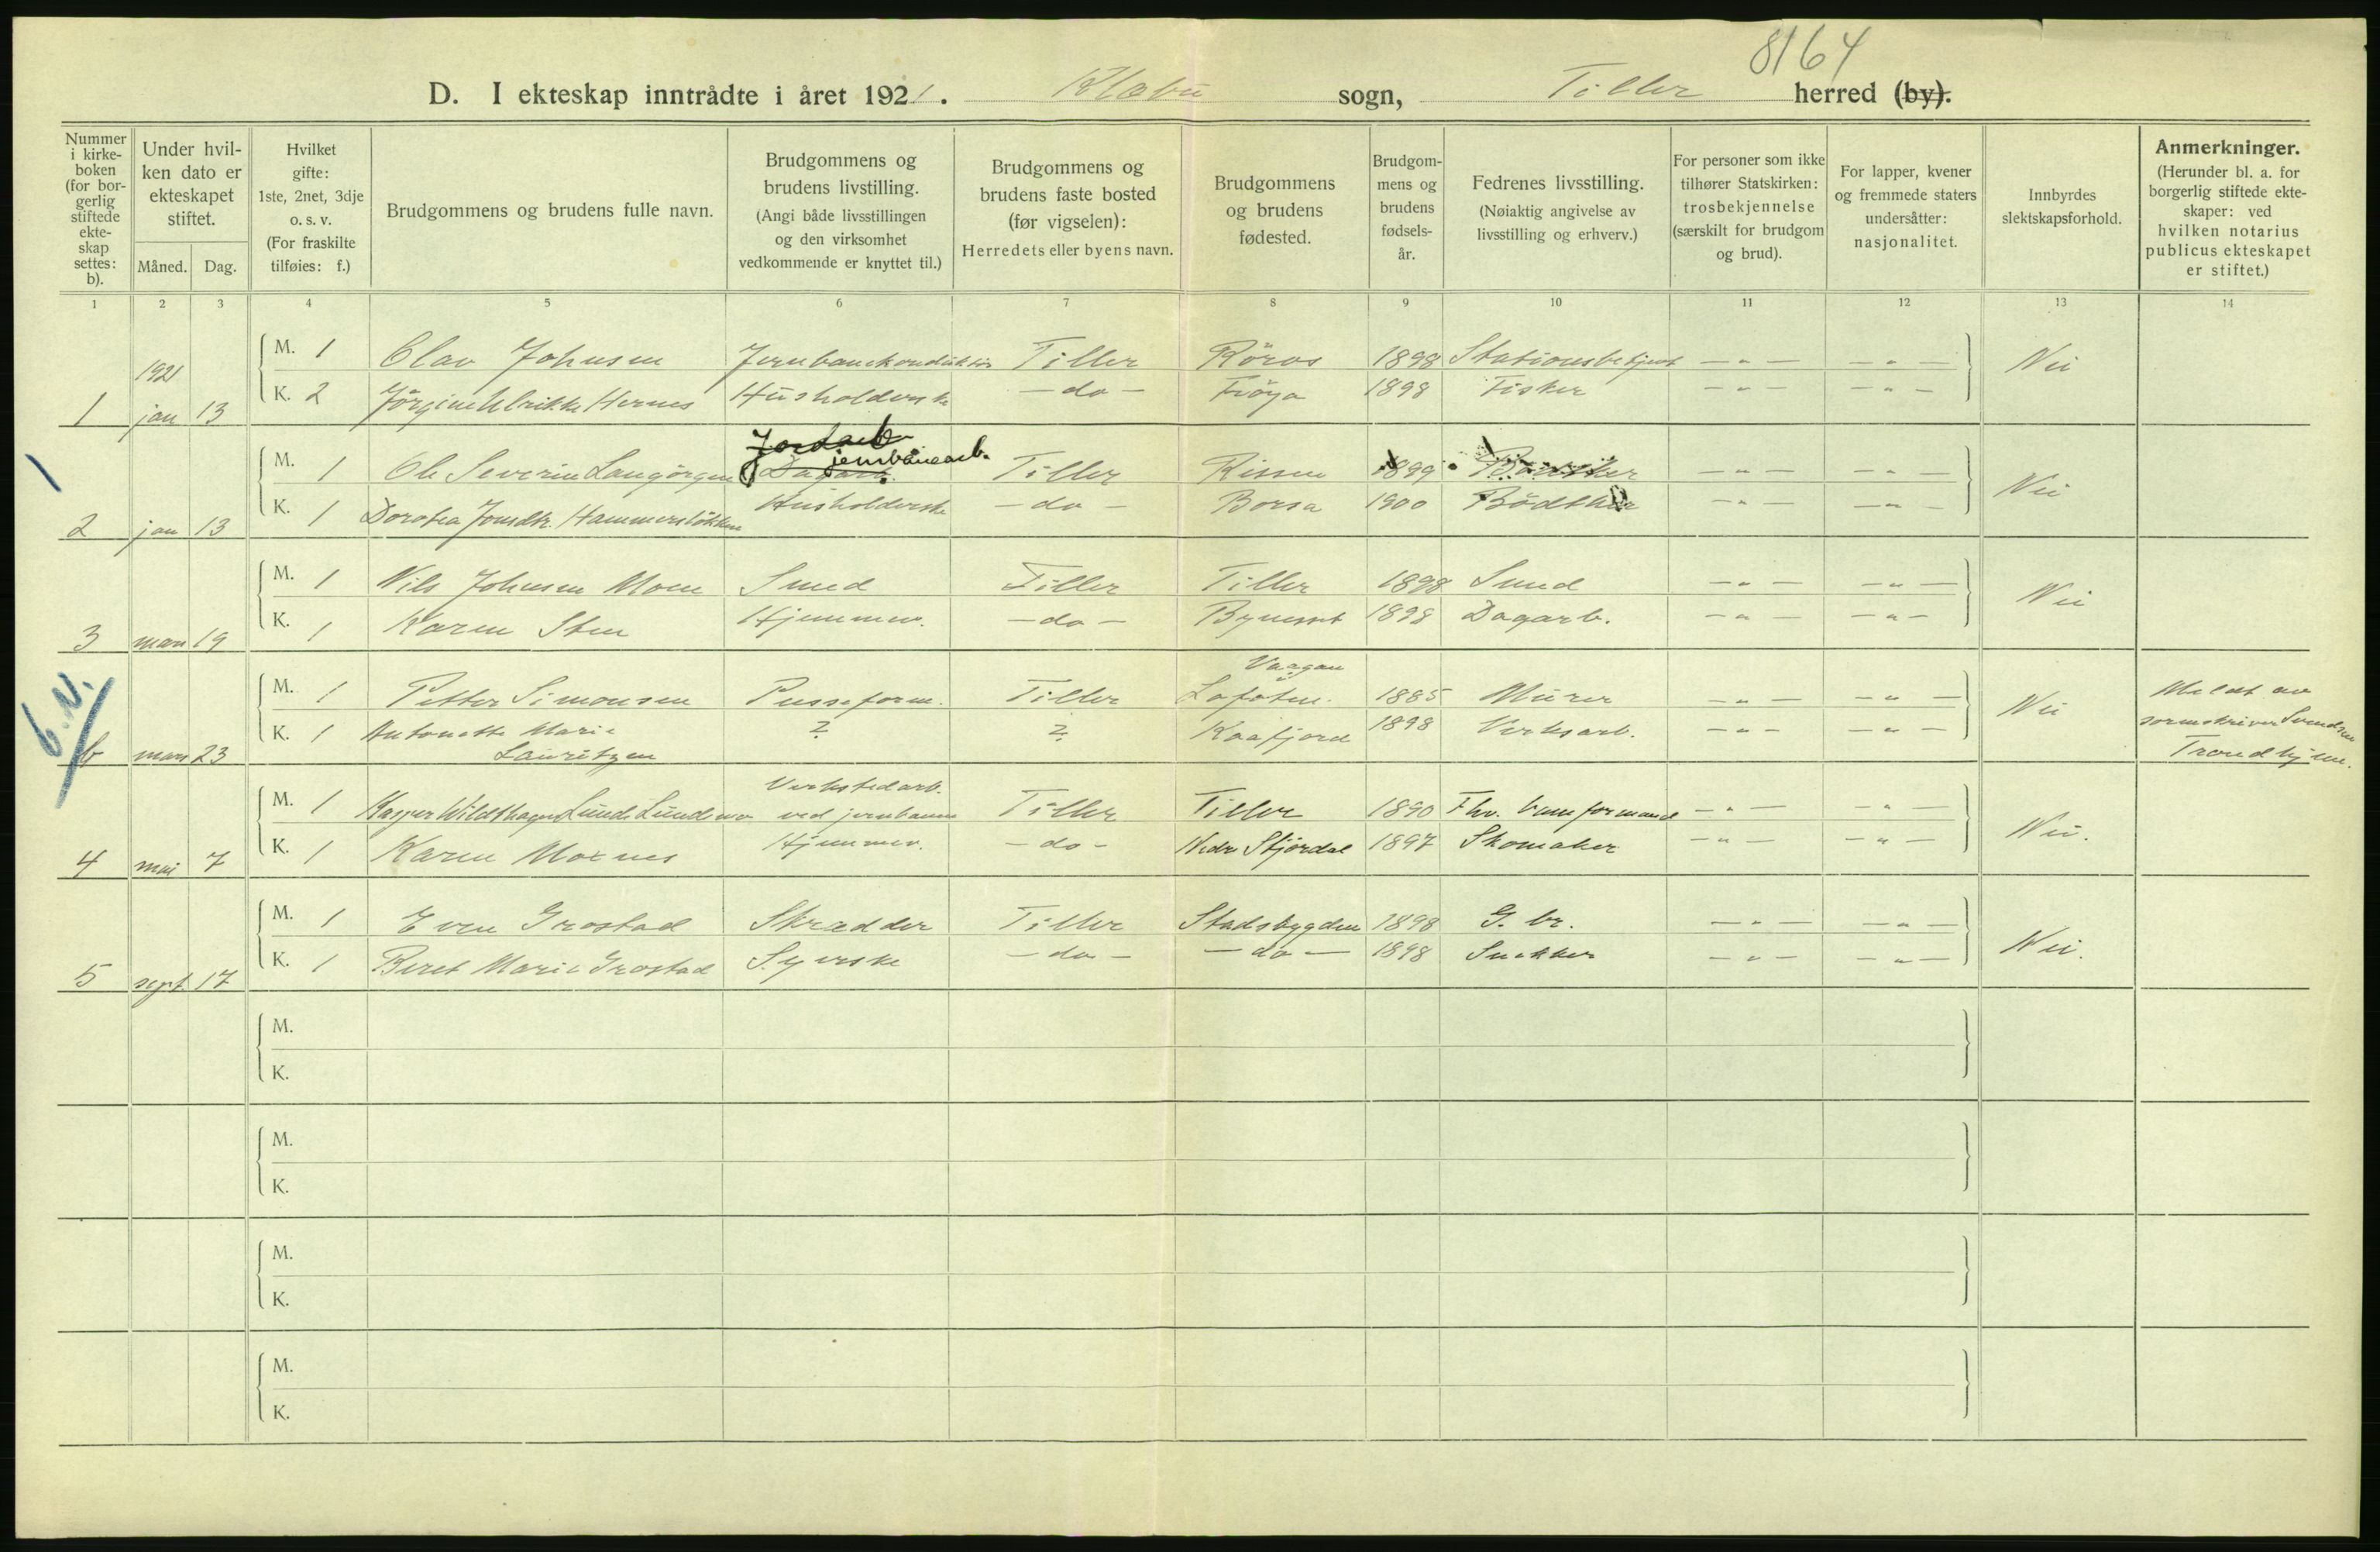 8164
D. I ekteskap inntrådte i året 1921. Klæbu sogn, Tiller herred (by).
Nummer i kirke-boken (for bor-gerlig stiftede ekte-skap settes: b).
Under hvil-ken dato er ekteskapet stiftet.
Måned. Dag.
Hvilket gifte: 1ste, 2net, 3dje o. s. v. (For fraskilte tilføies: f.)
Brudgommens og brudens fulle navn.
Brudgommens og brudens livstilling. (Angi både livsstillingen og den virksomhet vedkommende er knyttet til.)
Brudgommens og brudens faste bosted (før vigselen): Herredets eller byens navn.
Brudgommens og brudens fødested.
Brudgom-mens og brudens fødsels-år.
Fedrenes livsstilling. (Nøiaktig angivelse av livsstilling og erhverv.)
For personer som ikke tilhører Statskirken: trosbekjennelse (særskilt for brudgom og brud).
For lapper, kvener og fremmede staters undersåtter: nasjonalitet.
Innbyrdes slektskapsforhold.
Anmerkninger. (Herunder bl. a. for borgerlig stiftede ekte-skaper: ved hvilken notarius publicus ekteskapet er stiftet.)
1 2 3 4 5 6 7 8 9 10 11 12 13 14
1921
M. 1 Olav Johnsen Jernbanekonduktør Tiller Röros 1898 Stationsbetjent — „ — — „ — Nei
K. 2 Jörgine Ulrikke Hernes Husholderske — do — Fröya 1898 Fisker — „ — — „ —
1 jan 13
1
Jordarb
jernbanearb.
M. 1 Ole Severin Langörgen Dagarb. Tiller Rissen 1899 — „ — — „ — Nei
K. 1 Dorotea Jonsdtr. Hammerslökken Husholderske — do — Borsa 1900 Bödtker — „ — — „ —
2 jan 13
M. 1 Nils Johnsen Moen Smed Tiller Tiller 1898 Smed — „ — — „ — Nei
K. 1 Karen Sten Hjemmev. — do — Bynesset 1898 Dagarb. — „ — — „ —
3 mars 19
6.N.
Vaagan
M. 1 Petter Simonsen Pusseform. Tiller Lofoten. 1885 Murer — „ — — „ — Nei Meldt av
K. 1 Antonette Marie Lauritzen ? ? Kaafjord 1898 Verksarb. — „ — — „ — sorenskriver Svendsen
b mars 23 Trondhjem.
M. 1 Kasper Wildthagen Lunde Lundemo Verkstedarb. ved jernbanen Tiller Tiller 1890 Fhv. baneformand — „ — — „ — Nei.
K. 1 Karen Moxnes Hjemmev. — do — Nedr Stjördal 1897 Skomaker — „ — — „ —
4 mai 7
M. 1 Even Grostad Skrædder Tiller Stadsbygden 1898 G. br. — „ — — „ — Nei.
K. 1 Beret Marie Grostad Syerske — do — — do — 1898 Snekker — „ — — „ —
5 sept. 17
M.
K.
M.
K.
M.
K.
M.
K.